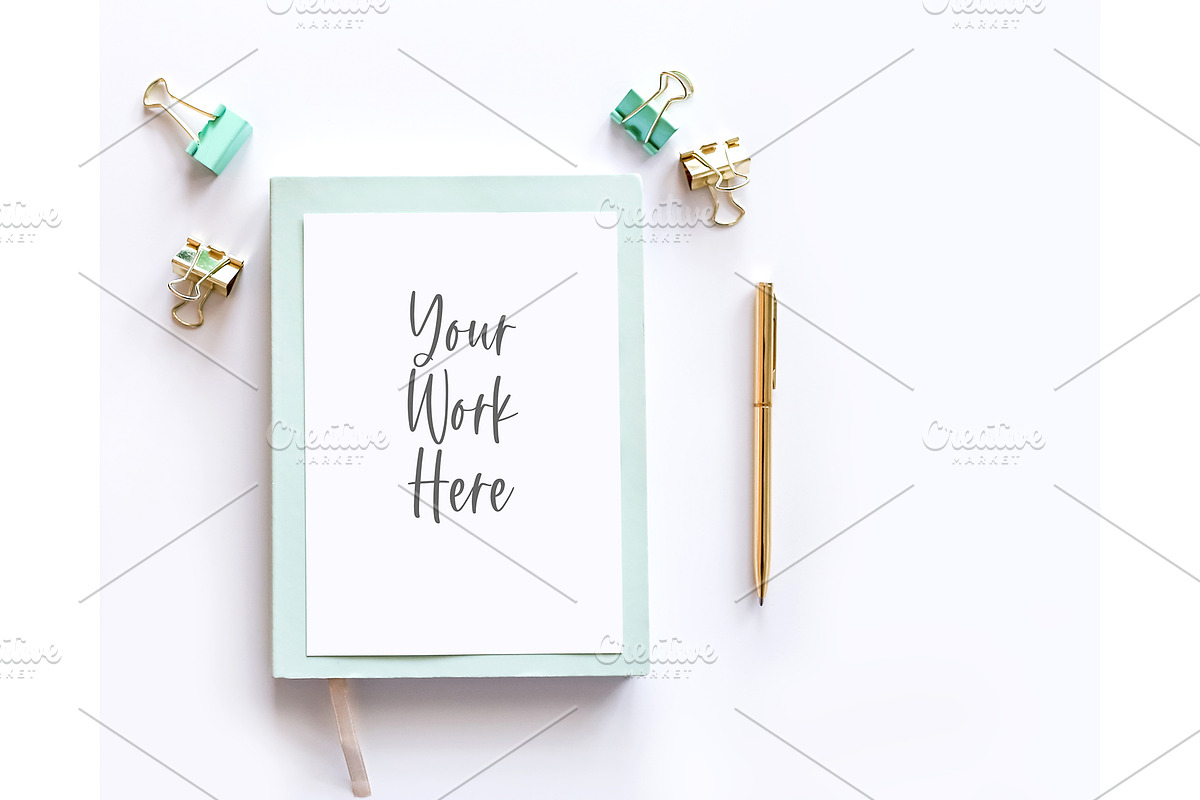 Creative
MARKET
Creative
MARKET
Creative
MARKET
Creative
MARKET
Your
Work
Here
Creative
MARKET
Creative
MARKET
Creative
MARKET
Creative
MARKET